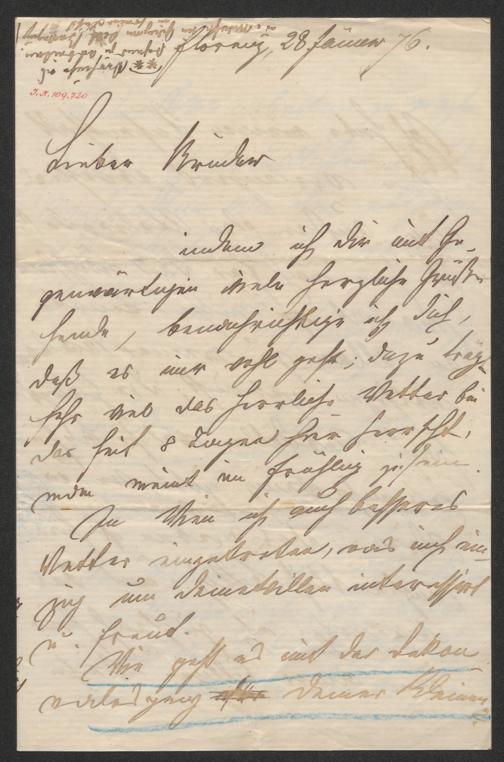 Florenz, 28 Jänner 76.
I.N. 109.720
Lieber Bruder
indem ich dir mit Ge-
genwärtigen viele herzliche Grüße
sende, benachrichtige ich Dich,
daß es mir wohl geht; dazu trägt
sehr viel das herrliche Wetter bei
das seit 8 Tagen hier herrscht,
man meint im Frühling zu sein.
In Wien ist auch besseres
Wetter eingetreten, was mich ein-
zig um deinetwillen interessirt
u. freut.
Wie geht es mit der Rekon
valeszenz deiner Kleinen